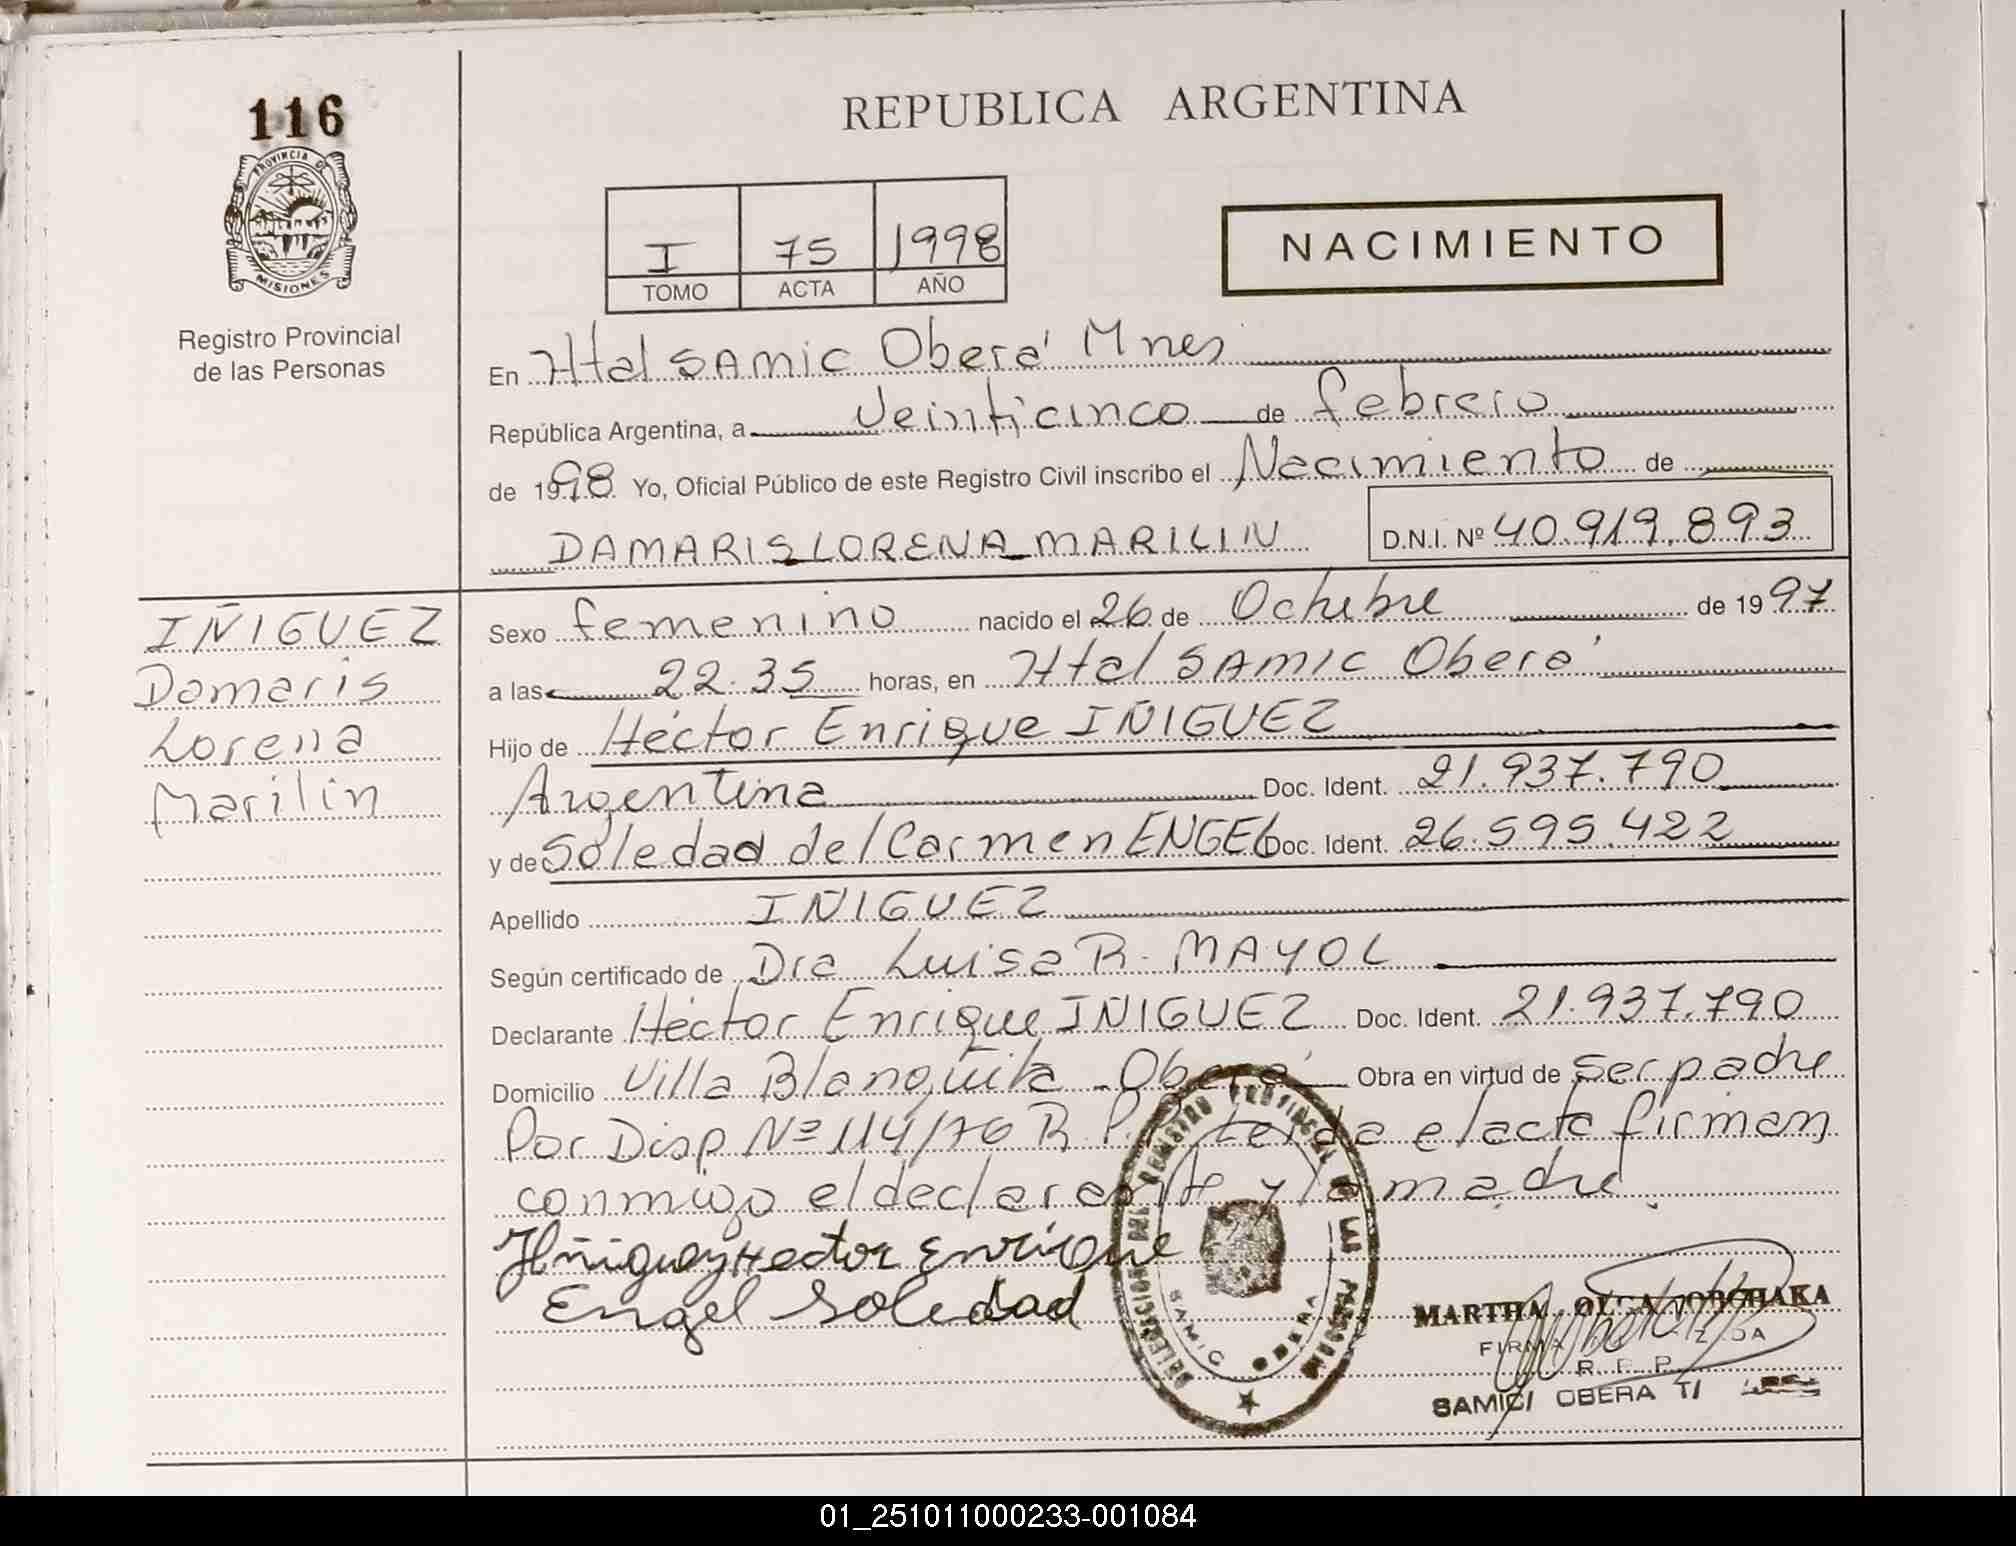 116
PROVINCIA DE
MISIONES
Registro Provincial
de las Personas
REPUBLICA ARGENTINA
I 75 1998
TOMO ACTA AÑO
NACIMIENTO
En Htal SAMIC Oberá Mnes
República Argentina, a Veinticinco de febrero
de 1998 Yo, Oficial Público de este Registro Civil inscribo el Nacimiento de
DAMARIS LORENA MARILIN D.N.I. Nº 40.919.893
IÑIGUEZ
Damaris
Lorena
Marilin
Sexo femenino nacido el 26 de Octubre de 1997
a las 22.35 horas, en Htal SAMIC Oberá
Hijo de Héctor Enrique IÑIGUEZ
Argentina Doc. Ident. 21.937.790
y de Soledad del Carmen ENGEL Doc. Ident. 26.595.422
Apellido IÑIGUEZ
Según certificado de Dra Luisa R. MAYOL
Declarante Héctor Enrique IÑIGUEZ Doc. Ident. 21.937.790
Domicilio Villa Blanquita - Oberá Obra en virtud de ser padre
Por Disp Nº 114/76 R.P.P. Leida el acta firman
conmigo el declarante y la madre.
Iñiguez Hector Enrique
Engel Soledad
DELEGACION DEL REGISTRO PROVINCIAL DE
SAMIC OBERA
MARTHA OLGA
FIRMA
R. P. P.
SAMIC OBERA
01_251011000233-001084